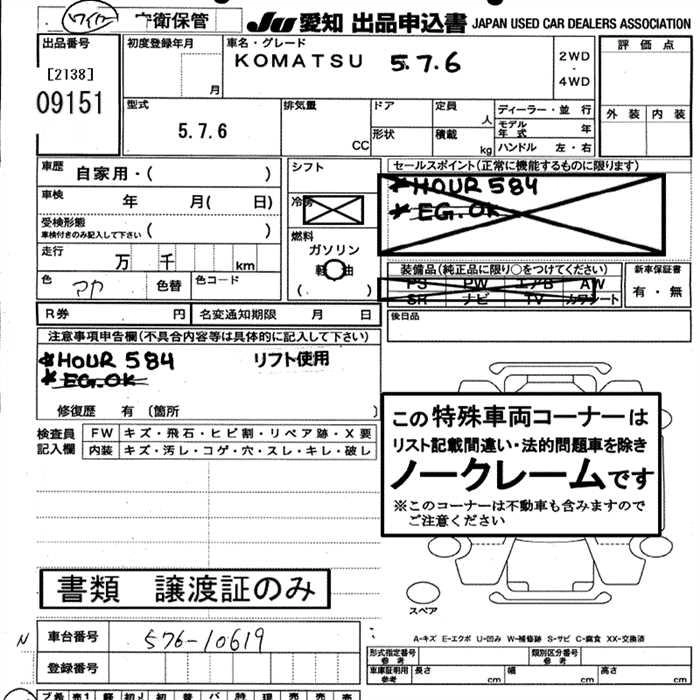 ワイケー 守衛保管
JU 愛知 出品申込書 JAPAN USED CAR DEALERS ASSOCIATION
出品番号 初度登録年月 車名・グレード 評価点
KOMATSU 5.7.6 2WD
・
4WD
[2138] 月
09151 外装 内装
型式 排気量 ドア 定員 ディーラー・並行
人 モデル年式 年
5.7.6 CC 形状 積載 kg ハンドル 左・右
車歴 自家用・( ) シフト セールスポイント(正常に機能するものに限ります)
*HOUR 584
車検 年 月( 日) 冷房
*EG.OK
受検形態
車検付きのみ記入して下さい ( ) 燃料
ガソリン
走行 万 千 km 軽油
( )
装備品(純正品に限り○をつけてください) 新車保証書
色 マカ 色替 色コード PS PW エアB AW 有・無
SR ナビ TV カワシート
R券 円 名変通知期限 月 日 後日品
注意事項申告欄(不具合内容等は具体的に記入して下さい)
*HOUR 584 リフト使用
*EG.OK
修復歴 有 (箇所 )
検査員 FW キズ・飛石・ヒビ割・リペア跡・X要
記入欄 内装 キズ・汚レ・コゲ・穴・スレ・キレ・破レ
この特殊車両コーナーは
リスト記載間違い・法的問題車を除き
ノークレームです
※このコーナーは不動車も含みますので
ご注意ください
書類 譲渡証のみ
スペア
A-キズ E-エクボ U-凹み W-補修跡 S-サビ C-腐食 XX-交換済
N 車台番号 576-10619
形式指定番号 参考 類別区分番号 参考
登録番号 車庫証明用 参考 長さ cm 幅 cm 高さ cm